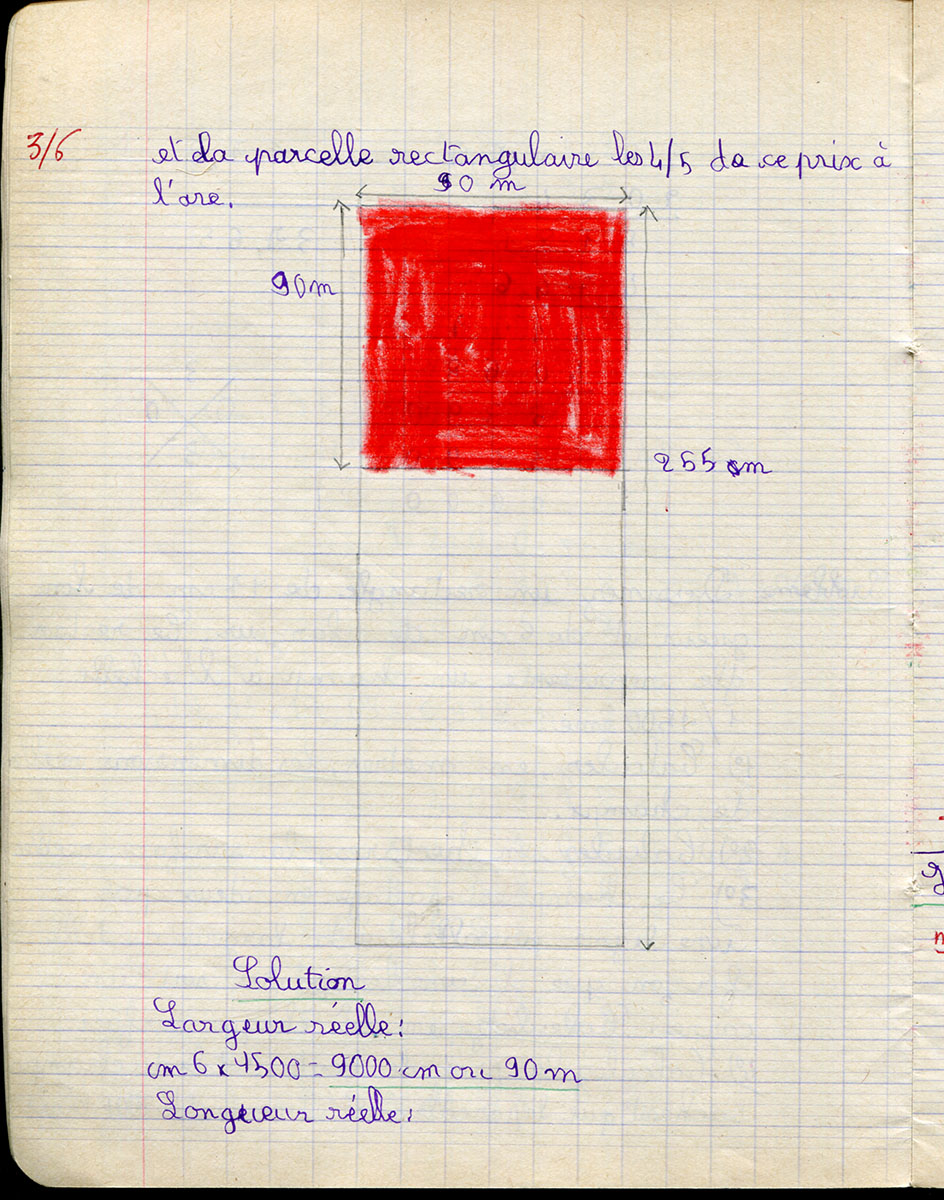 3/6
et da parcelle rectangulaire les 4/5 da ce prix à
l'are.
90 m
90 m
255 m
Solution
Largeur réelle:
cm 6 x 1500 = 9000 cm ou 90 m
Longueur réelle: